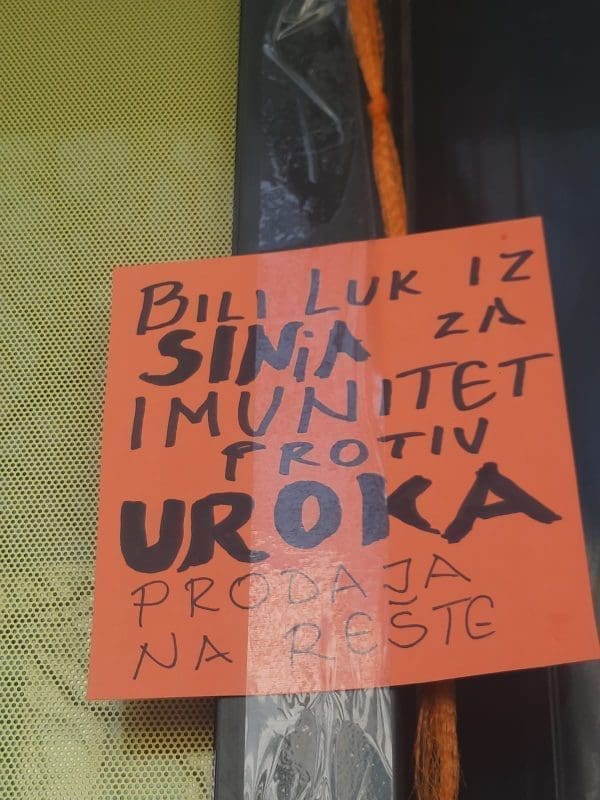 BILI LUK IZ
SINjA ZA
IMUNITET
PROTIV
UROKA
PRODAJA
NA REŠTE